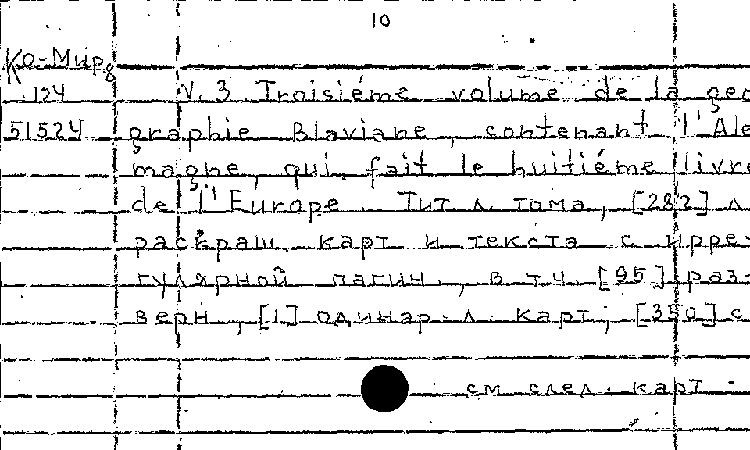 10
Ко-Мир8
124
51524
V. 3 Troisiéme volume de la geo
graphie Blaviane, contenant l'Ale
magne, qui fait le huitiéme livre
de l'Europe. Тит. л. тома, [282] л.
раскраш. карт и текста с ирре-
гулярной пагин., в т.ч. [95] раз-
верн., [1] одинар. л. карт; [350] с
см. след. карт.